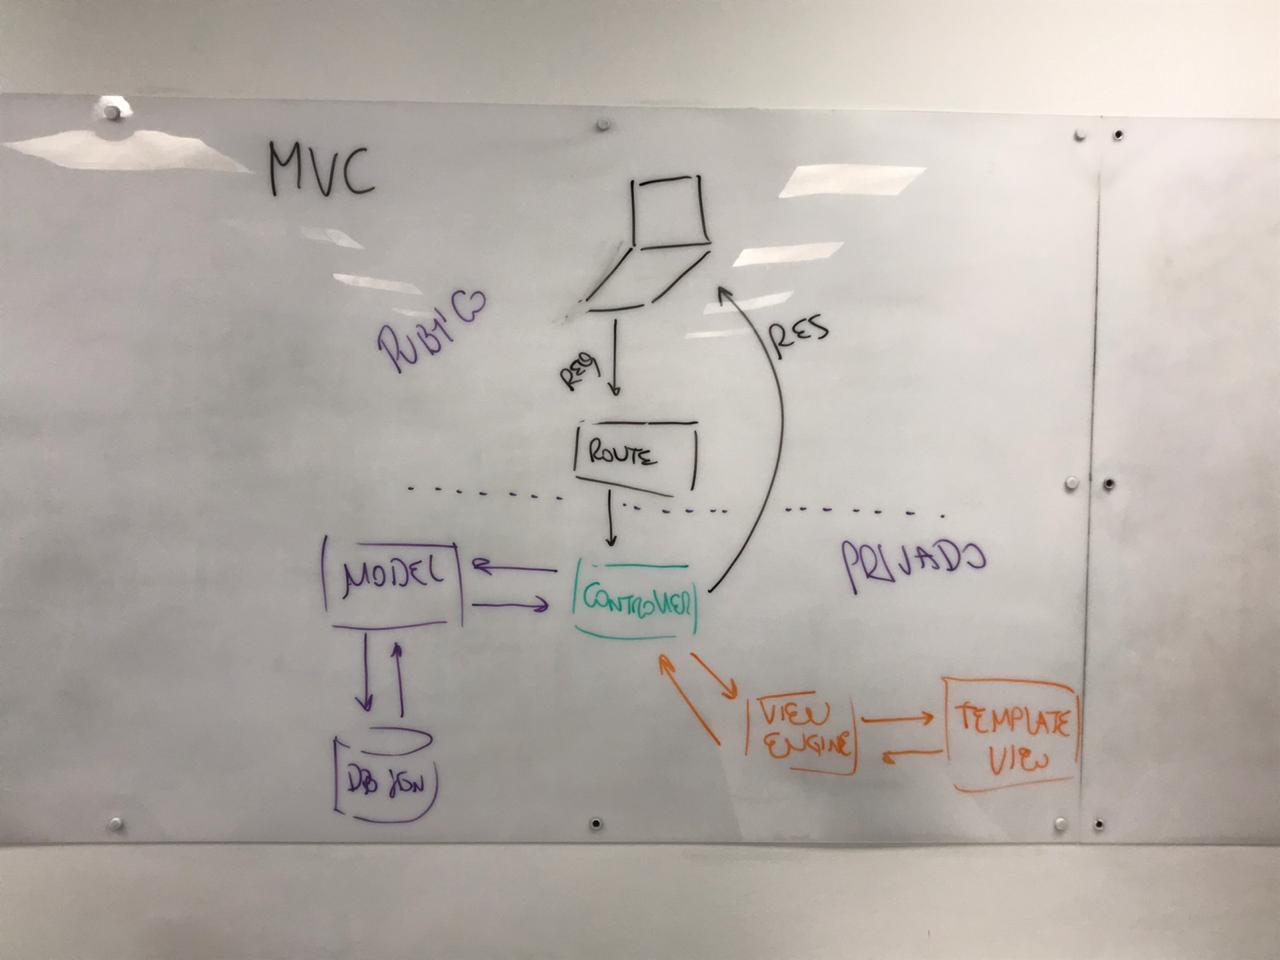 MVC
PUBLICO
RES
REQ
ROUTE
PRIVADO
MODEL
CONTROLLER
VIEW
ENGINE
TEMPLATE
VIEW
DB JSON